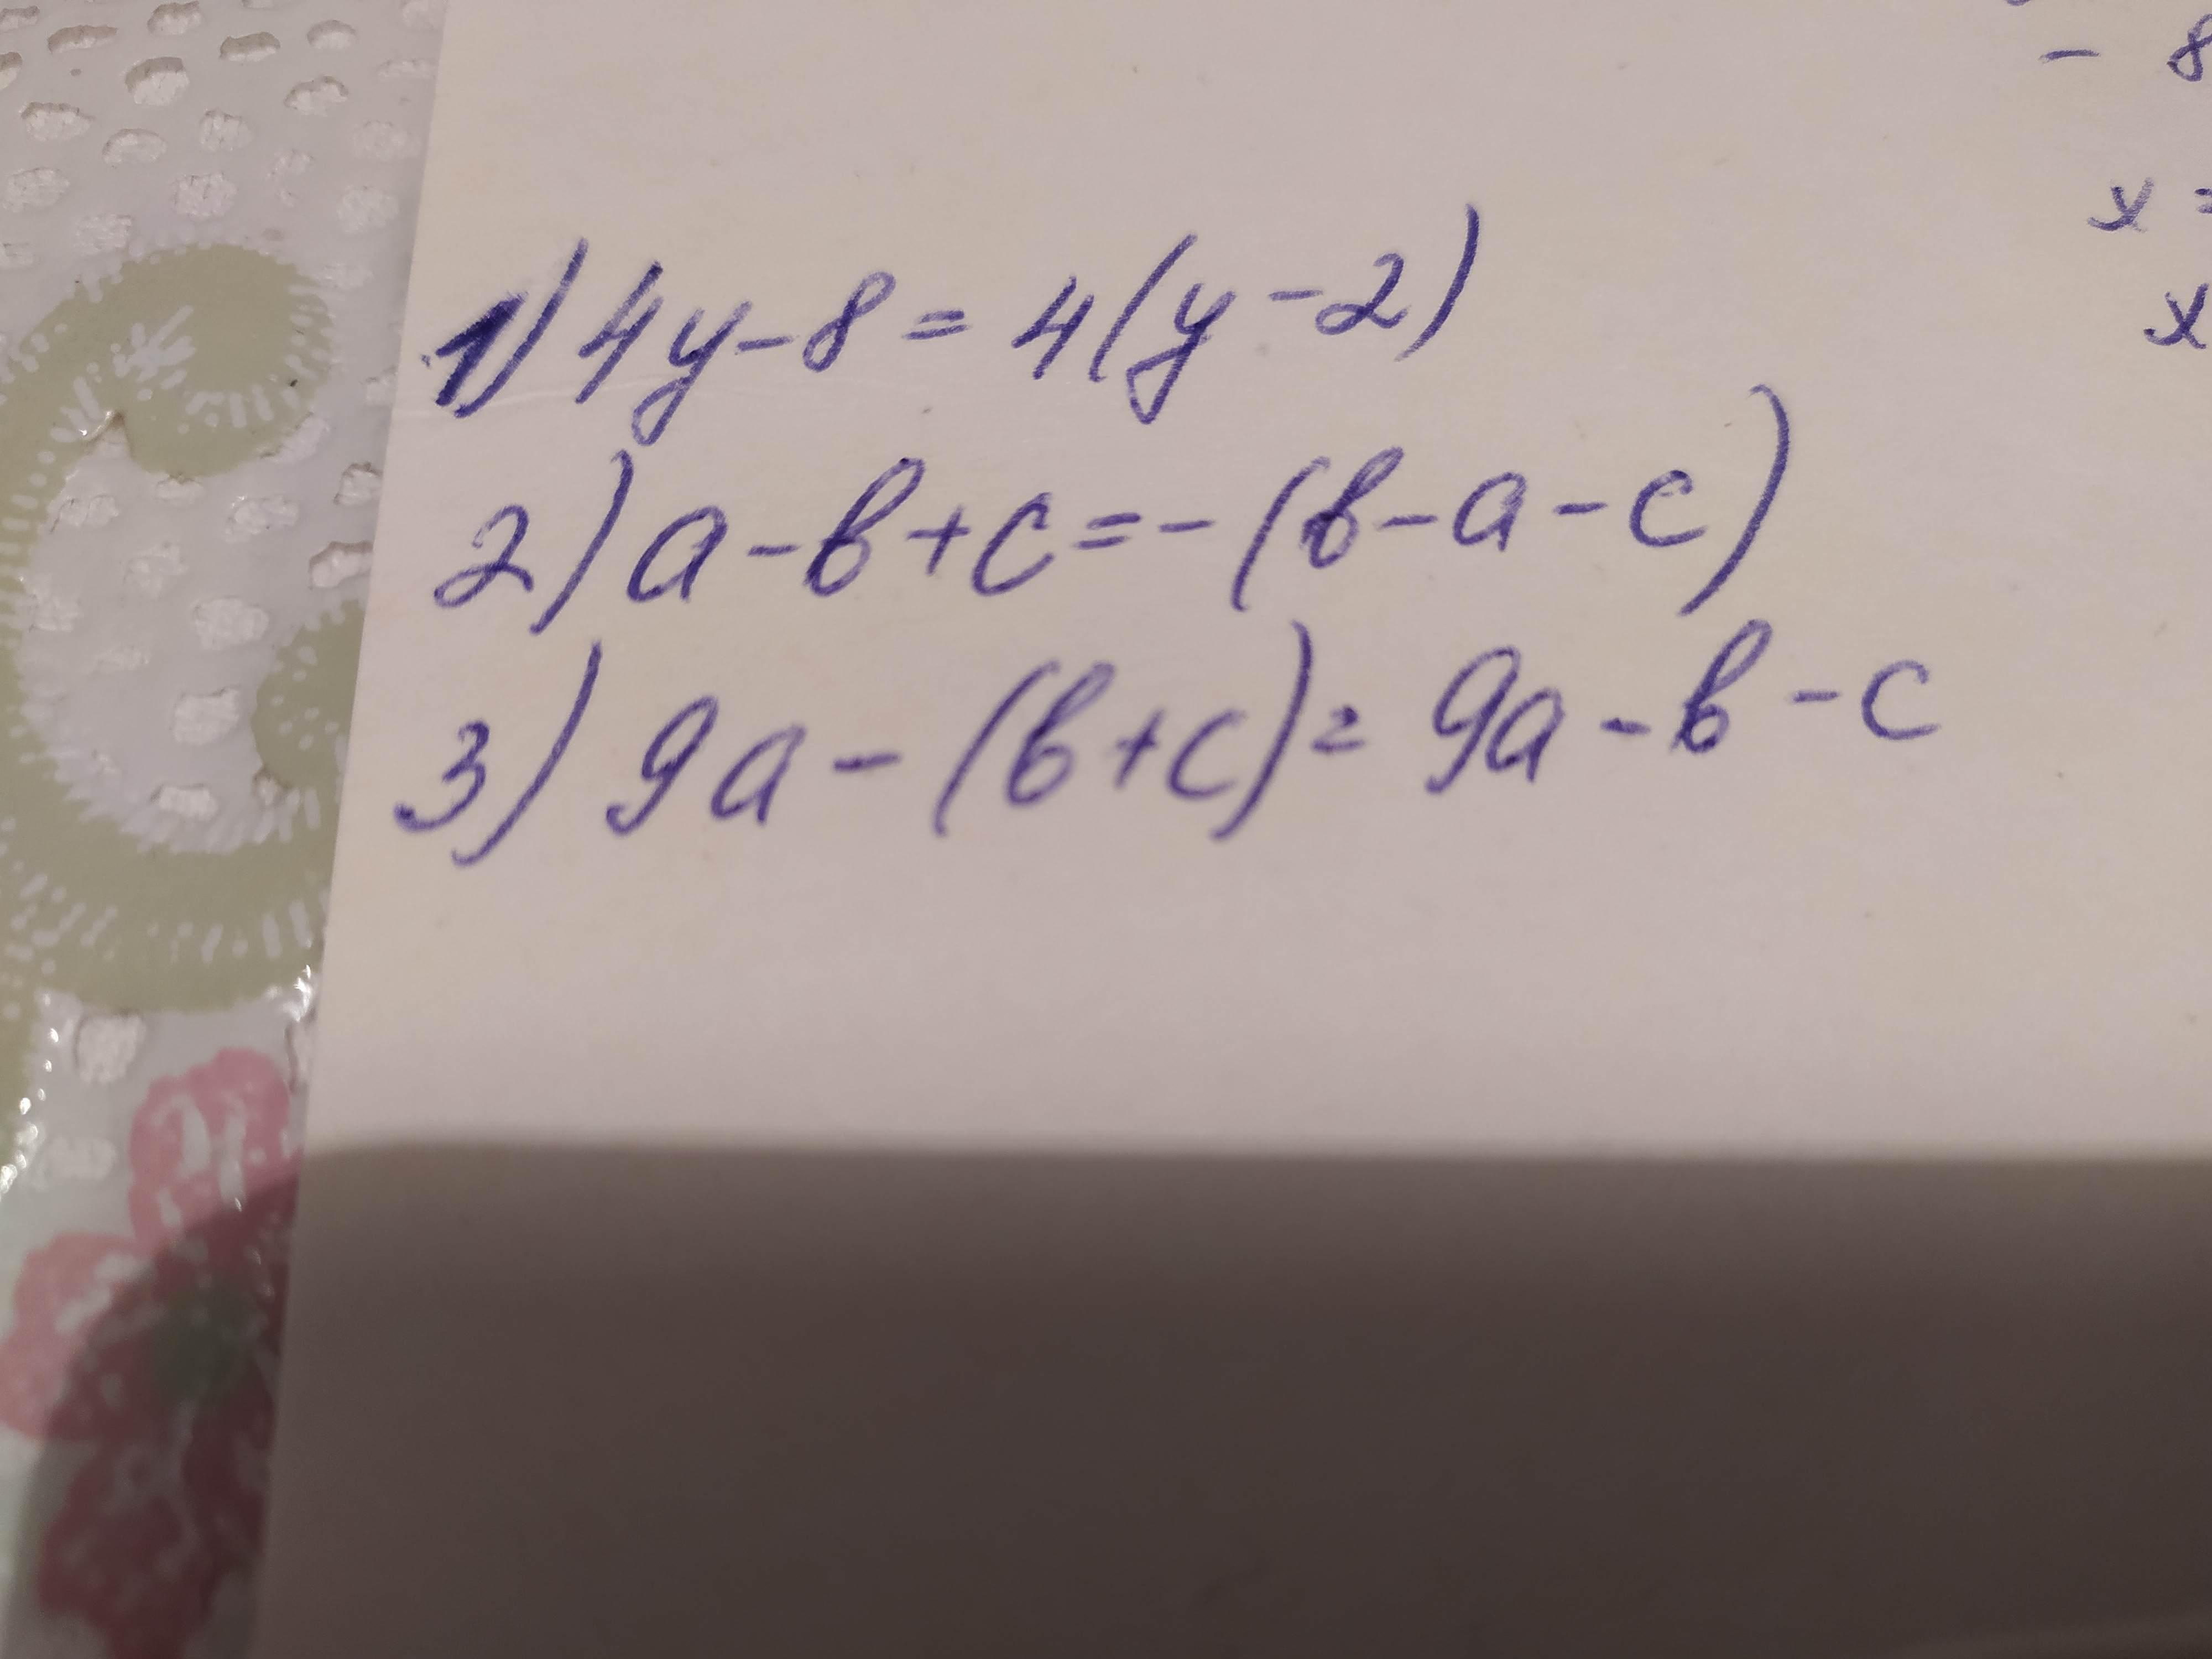 - 8
x =
x
1) 4y - 8 = 4(y - 2)
2) a - b + c = - (b - a - c)
3) 9a - (b + c) = 9a - b - c